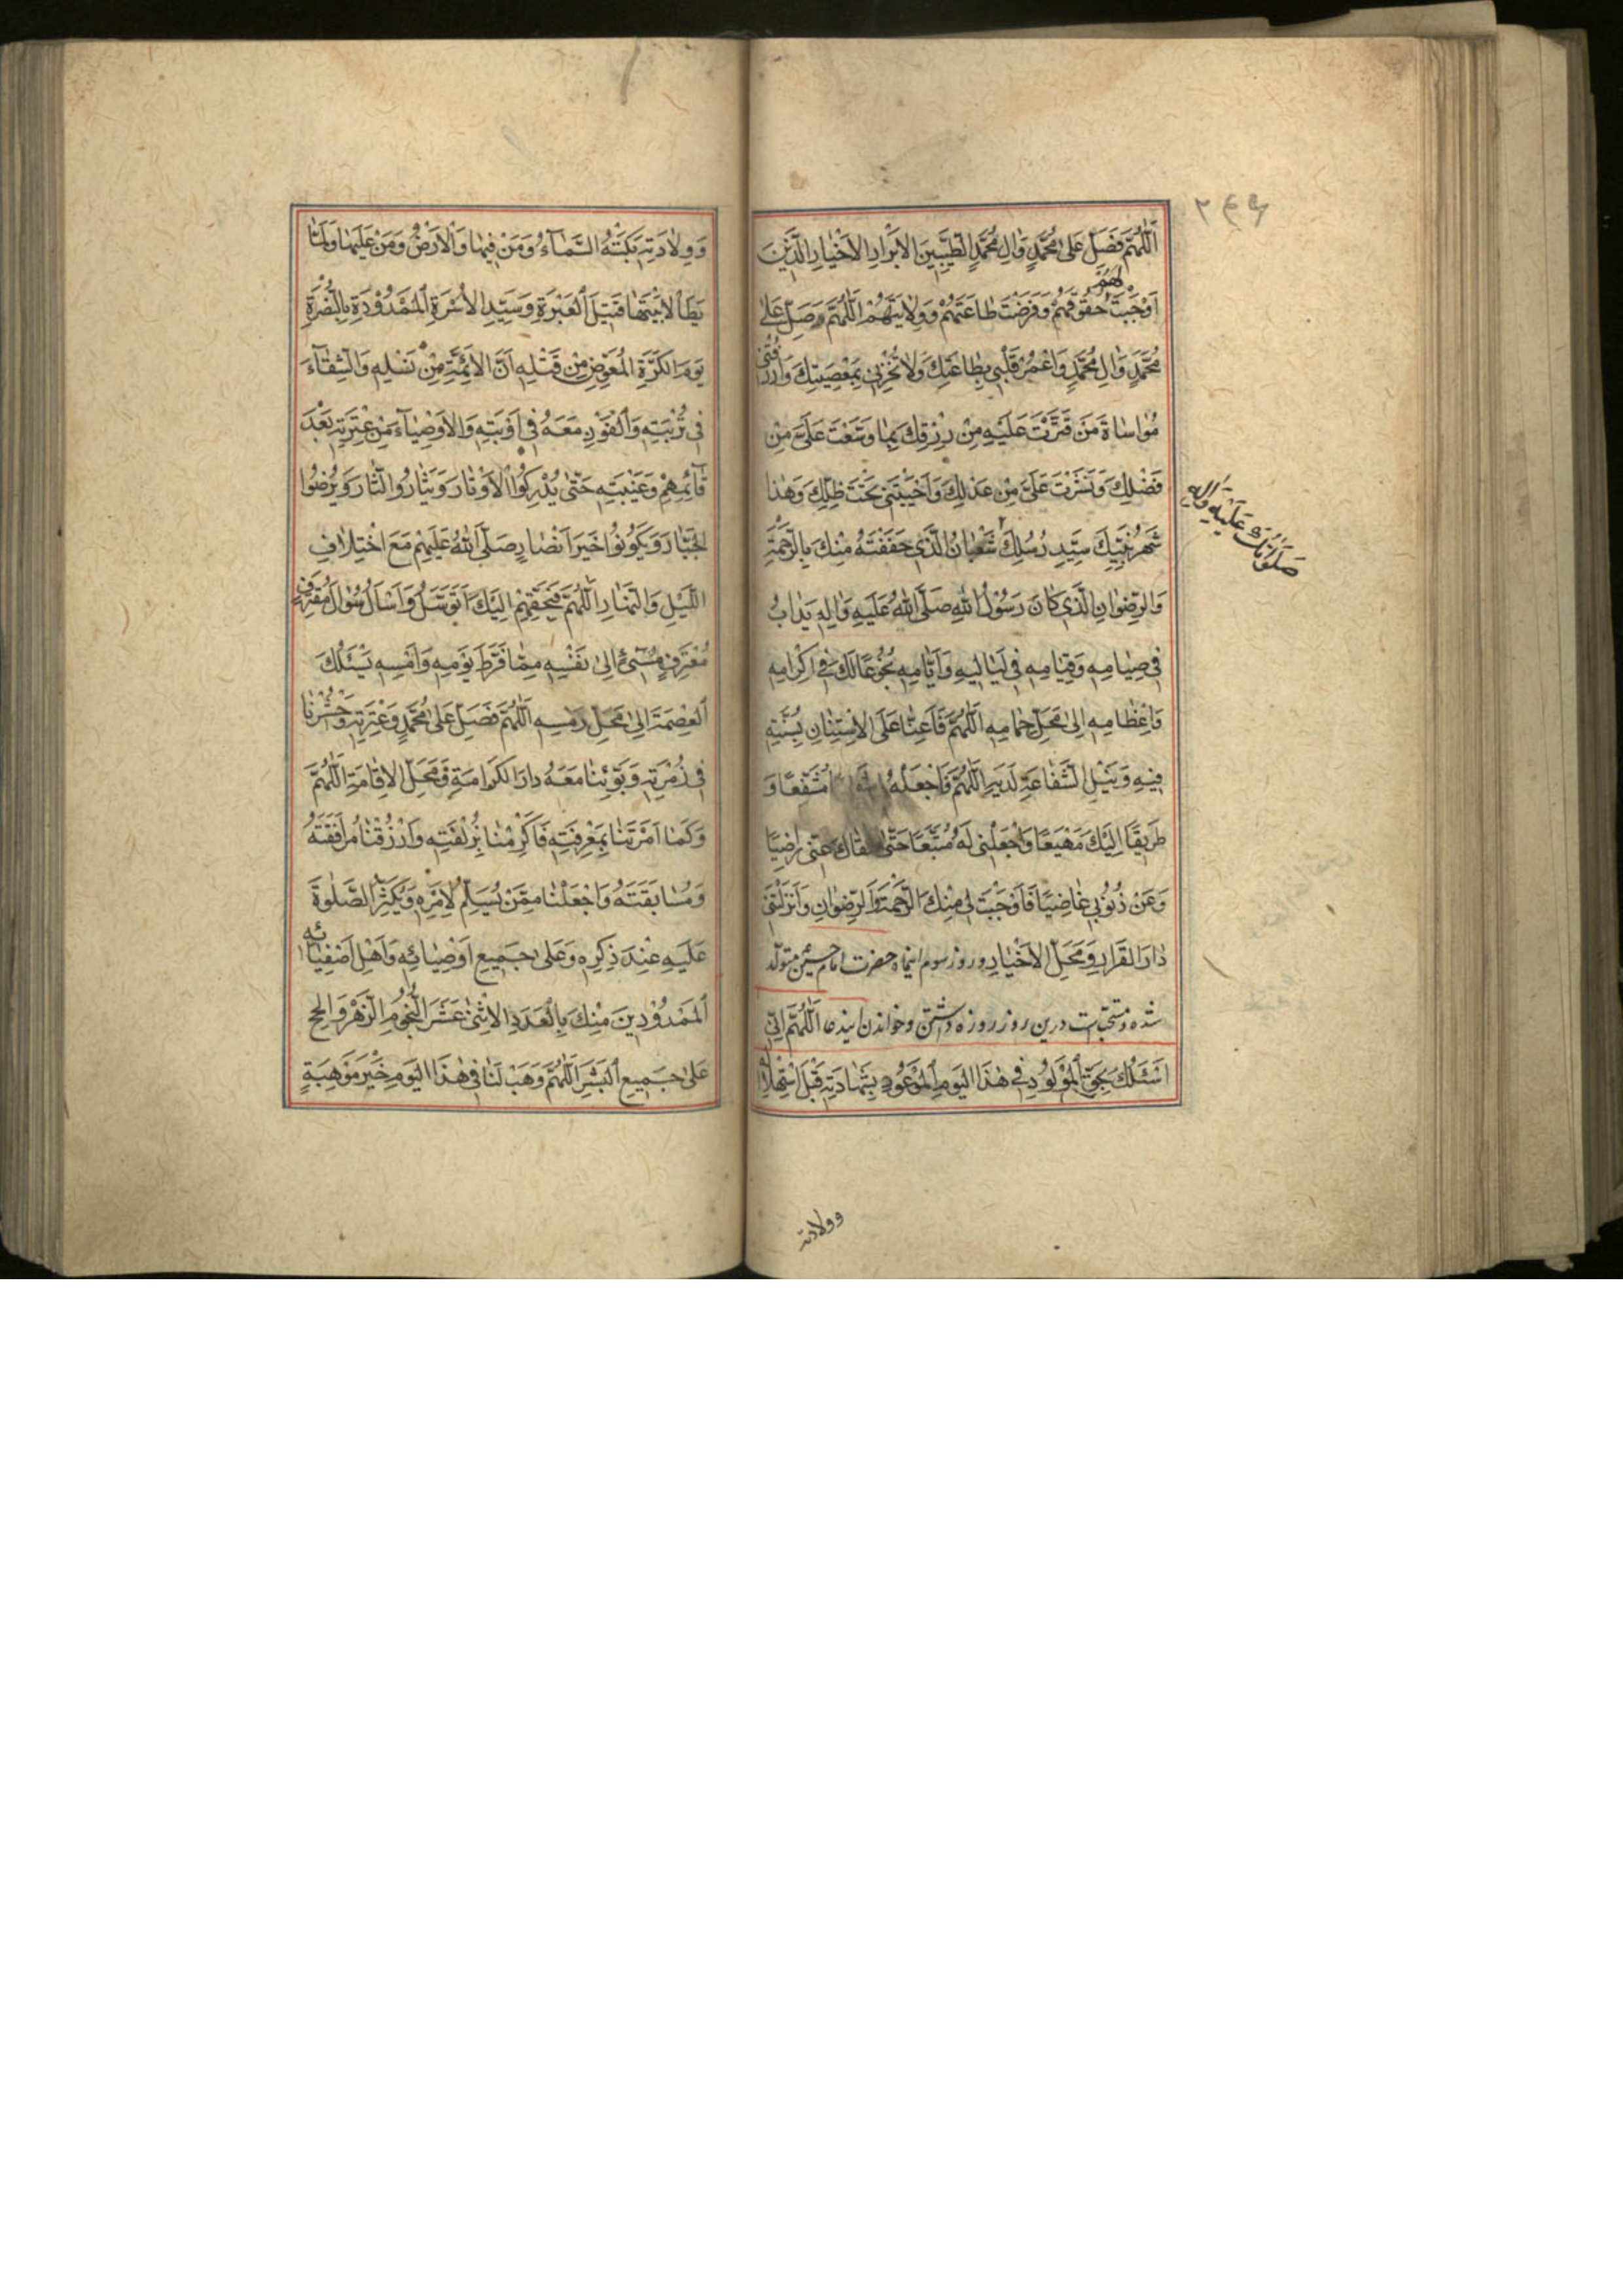 ٢٤٦
اَللّٰهُمَّ فَصَلِّ عَلٰى مُحَمَّدٍ وَاٰلِ مُحَمَّدٍ الطَّيِّبِينَ الْاَبْرَارِ الْاَخْيَارِ الَّذِينَ
لَهُمْ
اَوْجَبْتَ حُقُوقَهُمْ وَفَرَضْتَ طَاعَتَهُمْ وَوِلَايَتَهُمْ اَللّٰهُمَّ وَصَلِّ عَلٰى
مُحَمَّدٍ وَاٰلِ مُحَمَّدٍ وَاعْمُرْ قَلْبِي بِطَاعَتِكَ وَلَا تُخْزِنِي بِمَعْصِيَتِكَ وَارْزُقْنِي
مُوَاسَاةَ مَنْ قَتَّرْتَ عَلَيْهِ مِنْ رِزْقِكَ بِمَا وَسَّعْتَ عَلَيَّ مِنْ
فَضْلِكَ وَنَشَرْتَ عَلَيَّ مِنْ عَدْلِكَ وَاَحْيَيْتَنِي تَحْتَ ظِلِّكَ وَهٰذَا
شَهْرُ نَبِيِّكَ سَيِّدِ رُسُلِكَ شَعْبَانُ الَّذِي حَفَفْتَهُ مِنْكَ بِالرَّحْمَةِ
صَلَوَاتُكَ عَلَيْهِ وَاٰلِهِ
وَالرِّضْوَانِ الَّذِي كَانَ رَسُولُ اللّٰهِ صَلَّى اللّٰهُ عَلَيْهِ وَاٰلِهِ يَدْاَبُ
فِي صِيَامِهِ وَقِيَامِهِ فِي لَيَالِيهِ وَاَيَّامِهِ بُخُوعًا لَكَ فِي اِكْرَامِهِ
وَاِعْظَامِهِ اِلٰى مَحَلِّ حِمَامِهِ اَللّٰهُمَّ فَاَعِنَّا عَلَى الْاِسْتِنَانِ بِسُنَّتِهِ
فِيهِ وَنَيْلِ الشَّفَاعَةِ لَدَيْهِ اَللّٰهُمَّ فَاجْعَلْهُ مُشَفَّعًا وَ
طَرِيقًا اِلَيْكَ مَهْيَعًا وَاجْعَلْنِي لَهُ مُتَّبِعًا حَتّٰى اَلْقَاكَ عَنِّي رَاضِيًا
وَعَنْ ذُنُوبِي غَاضِيًا فَاَوْجَبْتَ لِي مِنْكَ الرَّحْمَةَ وَالرِّضْوَانَ وَاَنْزَلْتَنِي
دَارَ الْقَرَارِ وَمَحَلَّ الْاَخْيَارِ و روز سوم اینماه حضرت امام حسین متولد
شده و مستحب است درین روز روزه داشتن و خواندن ایندعا اَللّٰهُمَّ اِنِّي
اَسْئَلُكَ بِحَقِّ الْمَوْلُودِ فِي هٰذَا الْيَوْمِ الْمَوْعُودِ بِشَهَادَتِهِ قَبْلَ اسْتِهْلَالِهِ
وولادته
وَوِلَادَتِهِ بَكَتْهُ السَّمَاءُ وَمَنْ فِيهَا وَالْاَرْضُ وَمَنْ عَلَيْهَا وَلَمَّا
يَطَأْ لَابَتَيْهَا قَتِيلِ الْعَبْرَةِ وَسَيِّدِ الْاُسْرَةِ الْمَمْدُودَةِ بِالنُّصْرَةِ
يَوْمَ الْكَرَّةِ الْمُعَوَّضِ مِنْ قَتْلِهِ اَنَّ الْاَئِمَّةَ مِنْ نَسْلِهِ وَالشِّفَاءَ
فِي تُرْبَتِهِ وَالْفَوْزَ مَعَهُ فِي اَوْبَتِهِ وَالْاَوْصِيَاءَ مِنْ عِتْرَتِهِ بَعْدَ
قَائِمِهِمْ وَغَيْبَتِهِ حَتّٰى يُدْرِكُوا الْاَوْتَارَ وَيَثْاَرُوا الثَّارَ وَيُرْضُوا
الْجَبَّارَ وَيَكُونُوا خَيْرَ اَنْصَارٍ صَلَّى اللّٰهُ عَلَيْهِمْ مَعَ اخْتِلَافِ
اللَّيْلِ وَالنَّهَارِ اَللّٰهُمَّ فَبِحَقِّهِمْ اِلَيْكَ اَتَوَسَّلُ وَاَسْاَلُ سُؤَالَ مُقْتَرِفٍ
مُعْتَرِفٍ مُسِيءٍ اِلٰى نَفْسِهِ مِمَّا فَرَّطَ يَوْمِهِ وَاَمْسِهِ يَسْئَلُكَ
الْعِصْمَةَ اِلٰى مَحَلِّ رَمْسِهِ اَللّٰهُمَّ فَصَلِّ عَلٰى مُحَمَّدٍ وَعِتْرَتِهِ وَاحْشُرْنَا
فِي زُمْرَتِهِ وَبَوِّئْنَا مَعَهُ دَارَ الْكَرَامَةِ وَمَحَلَّ الْاِقَامَةِ اَللّٰهُمَّ
وَكَمَا اَمَرْتَنَا بِمَعْرِفَتِهِ فَاَكْرِمْنَا بِزُلْفَتِهِ وَارْزُقْنَا مُرَافَقَتَهُ
وَمُسَابَقَتَهُ وَاجْعَلْنَا مِمَّنْ يُسَلِّمُ لِاَمْرِهِ وَيُكْثِرُ الصَّلٰوةَ
عَلَيْهِ عِنْدَ ذِكْرِهِ وَعَلٰى جَمِيعِ اَوْصِيَائِهِ وَاَهْلِ اَصْفِيَائِهِ
الْمَمْدُودِينَ مِنْكَ بِالْعَدَدِ الْاِثْنَيْ عَشَرَ النُّجُومِ الزُّهْرِ وَالْحُجَجِ
عَلٰى جَمِيعِ الْبَشَرِ اَللّٰهُمَّ وَهَبْ لَنَا فِي هٰذَا الْيَوْمِ خَيْرَ مَوْهِبَةٍ